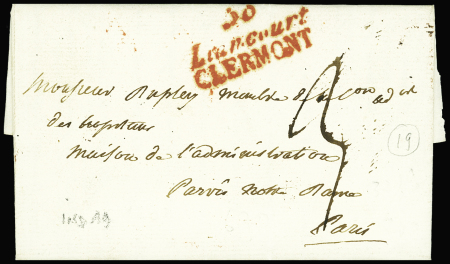 Liancourt
CLERMONT
Monsieur membre de la Com ad
des hopitaux
maison de l'administration
Parvis notre Dame
Paris
3
19